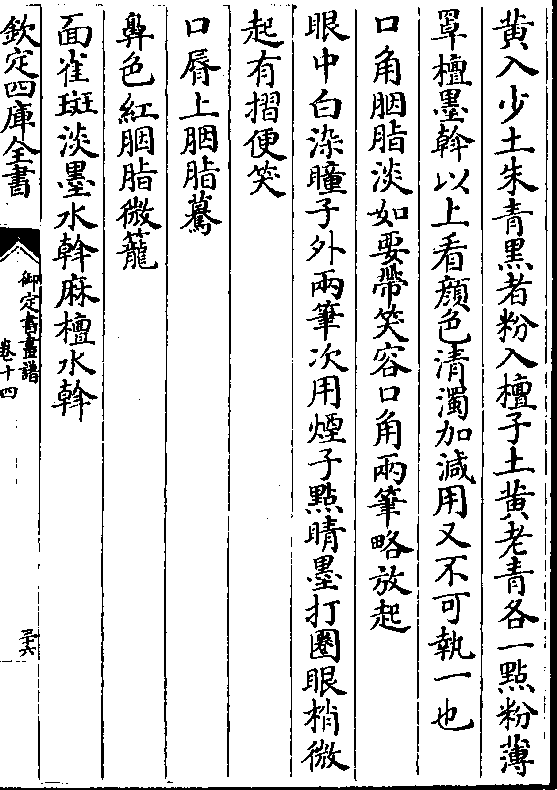 黄入少土朱青黒者粉入檀子土黄老青各一點粉薄
罩檀墨斡以上看顔色清濁加減用又不可執一也
口角胭脂淡如要帶笑容口角兩筆略放起
眼中白染瞳子外兩筆次用煙子點睛墨打圏眼梢微
起有摺便笑
口唇上胭脂驀
鼻色紅胭脂微籠
面雀斑淡墨水斡麻檀水斡
欽定四庫全書
御定書畫譜
卷十四